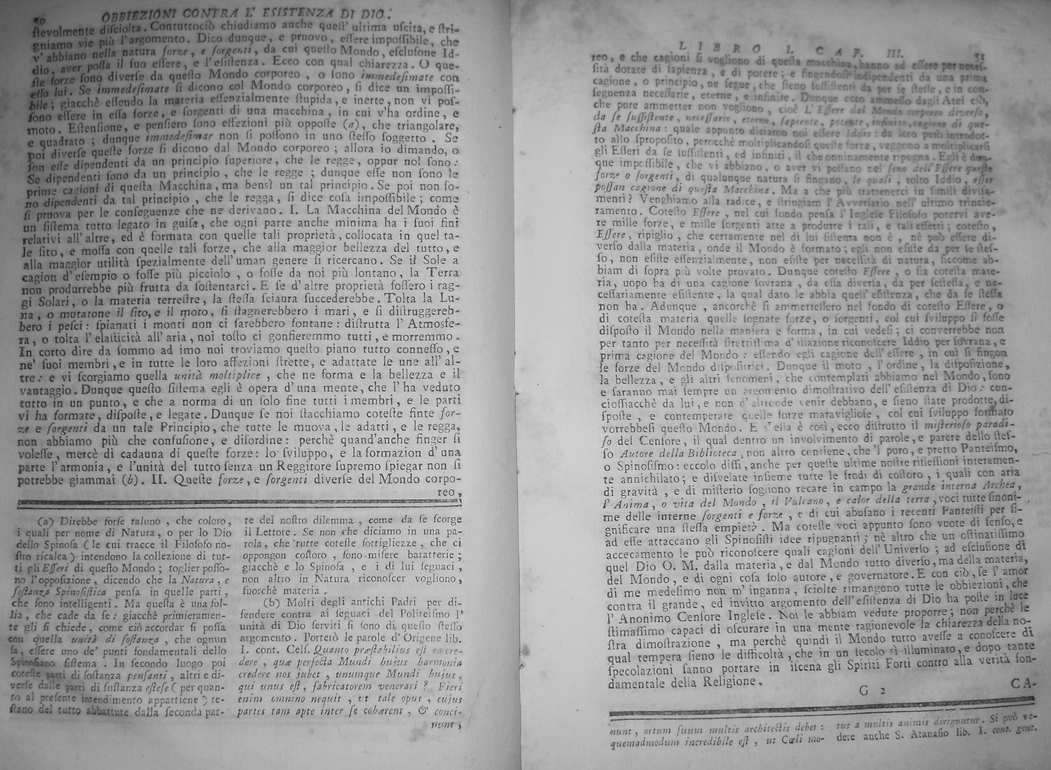 50 OBBIEZIONI CONTRA L' ESISTENZA DI DIO.
ſtevolmente diſciolta. Contuttociò chiudiamo anche queſt' ultima uſcita, e ſtri-
gniamo vie più l'argomento. Dico dunque, e pruovo, eſſere impoſſibile, che
v'abbiano nella natura forze, e ſorgenti, da cui queſto Mondo, eſcluſone Id-
dio, aver poſſa il ſuo eſſere, e l'eſiſtenza. Ecco con qual chiarezza. O que-
ſte forze ſono diverſe da queſto Mondo corporeo, o ſono immedeſimate con
eſſo lui. Se immedeſimate ſi dicono col Mondo corporeo, ſi dice un impoſſi-
bile; giacchè eſſendo la materia eſſenzialmente ſtupida, e inerte, non vi poſ-
ſono eſſere in eſſa forze, e ſorgenti di una macchina, in cui v'ha ordine, e
moto. Eſtenſione, e penſiero ſono eſſezioni più oppoſte (a), che triangolare,
e quadrato; dunque immedeſimar non ſi poſſono in uno ſteſſo ſoggetto. Se
poi diverſe queſte forze ſi dicono dal Mondo corporeo; allora io dimando, o
ſon eſſe dipendenti da un principio ſuperiore, che le regge, oppur nol ſono?
Se dipendenti ſono da un principio, che le regge; dunque eſſe non ſono le
prime cagioni di queſta Macchina, ma bensì un tal principio. Se poi non ſo-
no dipendenti da tal principio, che le regga, ſi dice coſa impoſſibile; come
ſi pruova per le conſeguenze che ne derivano. I. La Macchina del Mondo è
un ſiſtema tutto legato in guiſa, che ogni parte anche minima ha i ſuoi fini
relativi all'altre, ed è formata con quelle tali proprietà, collocata in quel ta-
le ſito, e moſſa con quelle tali forze, che alla maggior bellezza del tutto, e
alla maggior utilità ſpezialmente dell'uman genere ſi ricercano. Se il Sole a
cagion d'eſempio o foſſe più picciolo, o foſſe da noi più lontano, la Terra
non produrrebbe più frutta da ſoſtentarci. E ſe d'altre proprietà foſſero i rag-
gi Solari, o la materia terreſtre, la ſteſſa ſciaura ſuccederebbe. Tolta la Lu-
na, o mutatone il ſito, e il moto, ſi ſtagnerebbero i mari, e ſi diſtruggereb-
bero i peſci: ſpianati i monti non ci ſarebbero fontane: diſtrutta l'Atmosfe-
ra, o tolta l'elaſticità all'aria, noi toſto ci gonfieremmo tutti, e morremmo.
In corto dire da ſommo ad imo noi troviamo queſto piano tutto conneſſo, e
ne' ſuoi membri, e in tutte le loro affezioni ſtrette, e adattate le une all'al-
tre: e vi ſcorgiamo quella unità moltiplice, che ne forma e la bellezza e il
vantaggio. Dunque queſto ſiſtema egli è opera d'una mente, che l'ha veduto
tutto in un punto, e che a norma di un ſolo fine tutti i membri, e le parti
vi ha formate, diſpoſte, e legate. Dunque ſe noi ſtacchiamo coteſte finte for-
ze e ſorgenti da un tale Principio, che tutte le muova, le adatti, e le regga,
non abbiamo più che confuſione, e diſordine: perchè quand'anche finger ſi
voleſſe, mercè di cadauna di queſte forze: lo ſviluppo, e la formazion d'una
parte l'armonia, e l'unità del tutto ſenza un Reggitore ſupremo ſpiegar non ſi
potrebbe giammai (b). II. Queſte forze, e ſorgenti diverſe del Mondo corpo-
reo,
(a) Direbbe forſe taluno, che coloro,
i quali per nome di Natura, o per lo Dio
dello Spinoſa (le cui tracce il Filoſofo no-
ſtro ricalca) intendono la collezione di tut-
ti gli Eſſeri di queſto Mondo; toglier poſſo-
no l'oppoſizione, dicendo che la Natura, e
ſoſtanza Spinoſiſtica penſa in quelle parti,
che ſono intelligenti. Ma queſta è una fol-
lia, che cade da ſe: giacchè primieramen-
te gli ſi chiede, come ciò accordar ſi poſſa
con quella unità di ſoſtanza, che ognun
ſa, eſſere uno de' punti fondamentali dello
Spinoſiano ſiſtema. In ſecondo luogo poi
coteſte parti di ſoſtanza penſanti, altri e di-
verſe dalle parti di ſuſtanza eſteſe (per quan-
to al preſente intendimento appartiene) re-
ſtano del tutto abbattute dalla ſeconda par-
te del noſtro dilemma, come da ſe ſcorge
il Lettore. Se non che diciamo in una pa-
rola, che tutte coteſte ſortigliezze, che ci
oppongon coſtoro, ſono miſere baratterie;
giacchè e lo Spinoſa, e i di lui ſeguaci,
non altro in Natura riconoſcer vogliono,
fuorchè materia.
(b) Molti degli antichi Padri per di-
fendere contra ai ſeguaci del Politeiſmo l'
unità di Dio ſerviti ſi ſono di queſto ſteſſo
argomento. Porterò le parole d'Origene lib.
I. cont. Celſ. Quanto præſtabilius eſt ex cre-
dere, quæ perfecta Mundi hujus harmonia
credere nos jubet, unumque Mundi hujus,
qui unus eſt, fabricatorem venerari? Fieri
enim omnino nequit, ut tale opus, cujus
partes tam apte inter ſe cohærent, & conci-
nunt,
LIBRO I. CAP. III. 51
reo, e che cagioni ſi vogliono di queſta macchina, hanno ad eſſere per neceſ-
ſità dotare di ſapienza, e di potere; e fingendoſi indipendenti da una prima
cagione, o principio, ne ſegue, che ſieno ſuſſiſtenti da per ſe ſteſſe, e in con-
ſeguenza neceſſarie, eterne, e infinite. Dunque ecco ammeſſo dagli Atei ciò,
che pure ammetter non vogliono, cioè l'Eſſere del Mondo corporeo diverſo,
da ſe ſuſſiſtente, neceſſario, eterno, ſapiente, potente, infinito, cagione di que-
ſta Macchina: quale appunto diciamo noi eſſere Iddio: da loro però introdot-
to allo ſpropoſito, perocchè moltiplicandoſi queſte forze, veggono a moltiplicarſi
gli Eſſeri da ſe ſuſſiſtenti, ed infiniti, il che onninamente ripugna. Egli è dun-
que impoſſibile, che vi abbiano, o aver vi poſſano nel ſeno dell'Eſſere queſte
forze o ſorgenti, di qualunque natura ſi fingano, le quali, tolto Iddio, eſſer
poſſan cagione di queſta Macchina. Ma a che più trattenerci in ſimili divia-
menti? Venghiamo alla radice, e ſtringiam l'Avverſario nell'ultimo trincie-
ramento. Coteſto Eſſere, nel cui fondo penſa l'Ingleſe Filoſofo potervi ave-
re mille forze, e mille ſorgenti atte a produrre i tali, e tali effetti; coteſto,
Eſſere, ripiglio, che certamente nel di lui ſiſtema non è, nè può eſſere di-
verſo dalla materia, onde il Mondo è formato; egli non eſiſte da per ſe ſteſ-
ſo, non eſiſte eſſenzialmente, non eſiſte per neceſſità di natura, ſiccome ab-
biam di ſopra più volte provato. Dunque coteſto Eſſere, o ſia coteſta mate-
ria, uopo ha di una cagione ſovrana, da eſſa diverſa, da per ſe ſteſſa, e ne-
ceſſariamente eſiſtente, la qual dato le abbia quell'eſiſtenza, che da ſe ſteſſa
non ha. Adunque, ancorchè ſi ammetteſſero nel fondo di coteſto Eſſere, o
di coteſta materia quelle ſognate forze, o ſorgenti, col cui ſviluppo ſi foſſe
diſpoſto il Mondo nella maniera e forma, in cui vedeſi; ci converrebbe non
per tanto per neceſſità ſtrettiſſima d'illazione riconoſcere Iddio per ſovrana, e
prima cagione del Mondo: eſſendo egli cagione dell'eſſere, in cui ſi fingon
le forze del Mondo diſpoſitrici. Dunque il moto, l'ordine, la diſpoſizione,
la bellezza, e gli altri fenomeni, che contemplati abbiamo nel Mondo, ſono
e ſaranno mai ſempre un argomento dimoſtrativo dell'eſiſtenza di Dio: con-
cioſſiachè da lui, e non d'altronde venir debbano, e ſieno ſtate prodotte, di-
ſpoſte, e contemperate quelle forze maraviglioſe, col cui ſviluppo formato
vorrebbeſi queſto Mondo. E s'ella è così, ecco diſtrutto il miſterioſo paradiſ-
ſo del Cenſore, il qual dentro un involvimento di parole, e parere dello ſteſ-
ſo Autore della Biblioteca, non altro contiene, che'l puro, e pretto Panteiſmo,
o Spinoſiſmo: eccolo diſſi, anche per queſte ultime noſtre rifleſſioni interamen-
te annichilato; e diſvelate inſieme tutte le frodi di coſtoro, i quali con aria
di gravità, e di miſterio ſogliono recare in campo la grande interna Archea,
l'Anima, o vita del Mondo, il Vulcano, e calor della terra, voci tutte ſinoni-
me delle interne ſorgenti e forze, e di cui abuſano i recenti Panteiſti per ſi-
gnificare una ſteſſa empietà. Ma coteſte voci appunto ſono vuote di ſenſo, e
ad eſſe attaccano gli Spinoſiſti idee ripugnanti; nè altro che un oſtinatiſſimo
accecamento le può riconoſcere quali cagioni dell'Univerſo; ad eſcluſione di
quel Dio O. M. dalla materia, e dal Mondo tutto diverſo, ma della materia,
del Mondo, e di ogni coſa ſolo autore, e governatore. E con ciò, ſe l'amor
di me medeſimo non m'inganna, ſciolte rimangono tutte le obbiezioni, che
contra il grande, ed invitto argomento dell'eſiſtenza di Dio ha poſte in luce
l'Anonimo Cenſore Ingleſe. Noi le abbiam vedute proporre; non perchè le
ſtimaſſimo capaci di oſcurare in una mente ragionevole la chiarezza della no-
ſtra dimoſtrazione, ma perchè quindi il Mondo tutto aveſſe a conoſcere di
qual tempera ſieno le difficoltà, che in un ſecolo sì illuminato, e dopo tante
ſpecolazioni ſanno portare in iſcena gli Spiriti Forti contro alla verità fon-
damentale della Religione.
G 2 CA-
nunt, ortum ſuum multis architectis debet:
quemadmodum incredibile eſt, ut Cœli mo-
tus a multis animis dirigantur. Si può ve-
dere anche S. Atanaſio lib. I. cont. gent.